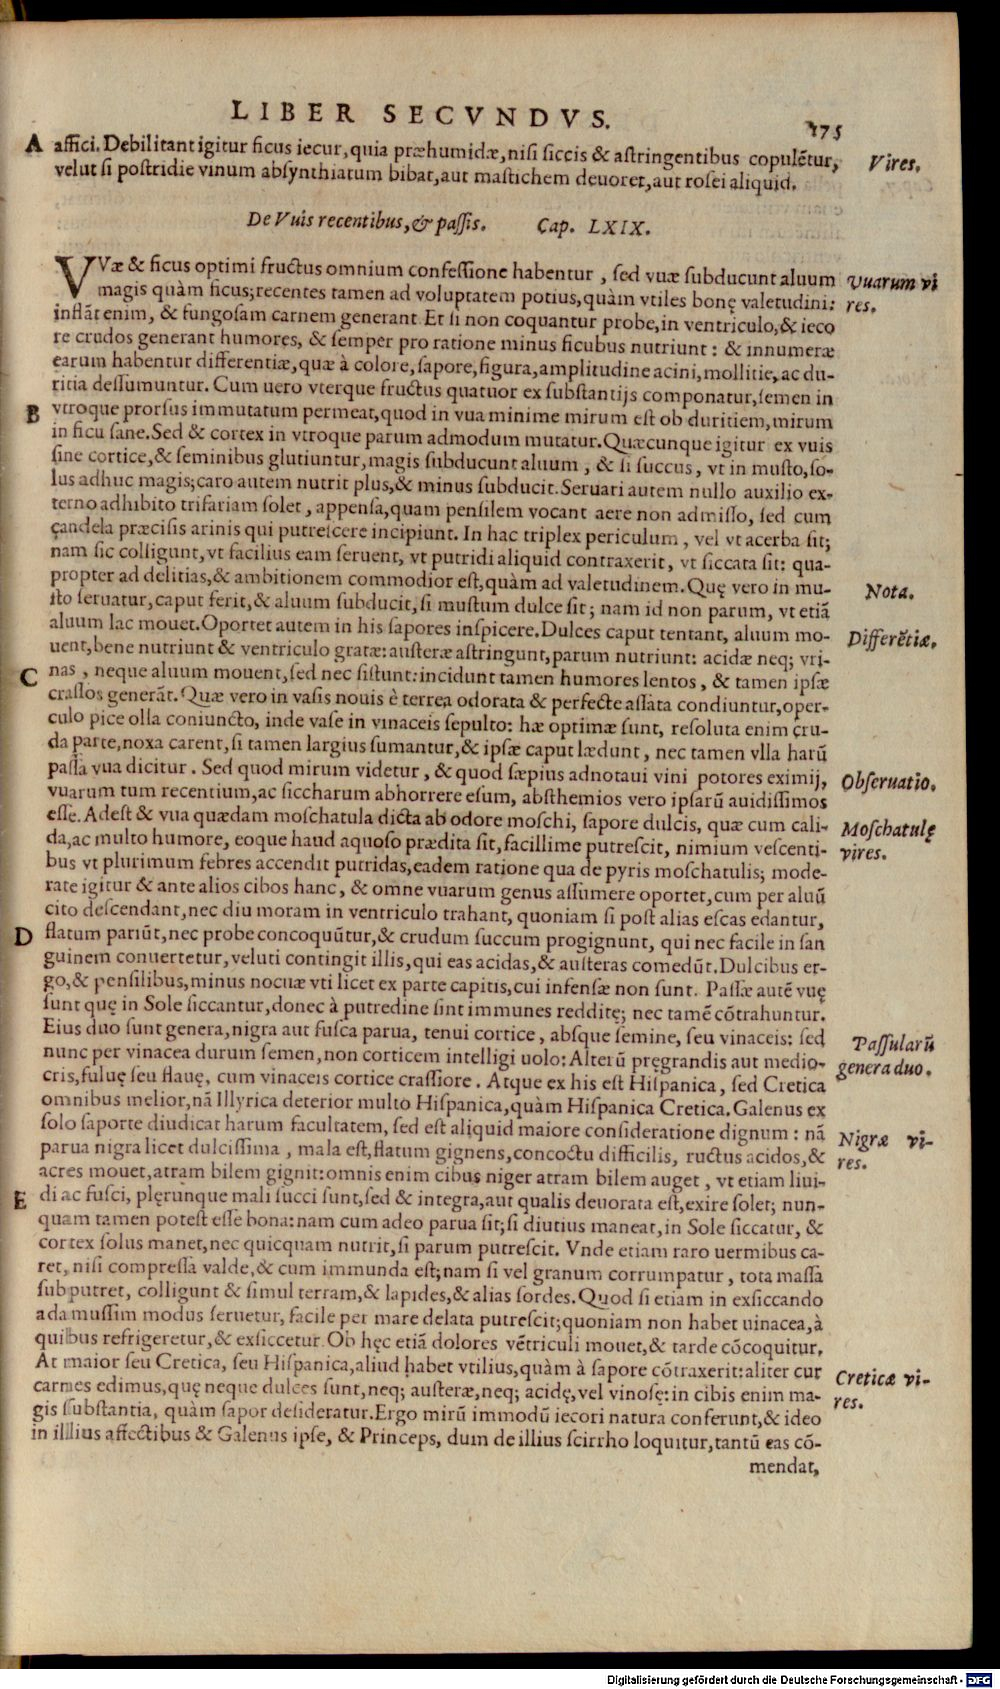 LIBER SECVNDVS.
175
A affici. Debilitant igitur ficus iecur, quia præhumidæ, nisi siccis & astringentibus copulẽtur,
Vires.
velut si postridie vinum absynthiatum bibat, aut mastichem deuoret, aut rosei aliquid.
De Vuis recentibus, & passis. Cap. LXIX.
VVæ & ficus optimi fructus omnium confessione habentur, sed vuæ subducunt aluum
Vuarum vi
magis quàm ficus; recentes tamen ad voluptatem potius, quàm vtiles bonę valetudini:
res.
inflãt enim, & fungosam carnem generant Et si non coquantur probe, in ventriculo, & ieco
re crudos generant humores, & semper pro ratione minus ficubus nutriunt: & innumeræ
earum habentur differentiæ, quæ à colore, sapore, figura, amplitudine acini, mollitie, ac du-
ritia dessumuntur. Cum uero vterque fructus quatuor ex substantijs componatur, semen in
B vtroque prorsus immutatum permeat, quod in vua minime mirum est ob duritiem, mirum
in ficu sane. Sed & cortex in vtroque parum admodum mutatur. Quæcunque igitur ex vuis
sine cortice, & seminibus glutiuntur, magis subducunt aluum, & si succus, vt in musto, so-
lus adhuc magis; caro autem nutrit plus, & minus subducit. Seruari autem nullo auxilio ex-
terno adhibito trifariam solet, appensa, quam pensilem vocant aere non admisso, sed cum
candela præcisis arinis qui putrescere incipiunt. In hac triplex periculum, vel vt acerba sit;
nam sic colligunt, vt facilius eam seruent, vt putridi aliquid contraxerit, vt siccata sit: qua-
propter ad delitias, & ambitionem commodior est, quàm ad valetudinem. Quę vero in mu-
Nota.
sto seruatur, caput ferit, & aluum subducit, si mustum dulce sit; nam id non parum, vt etiã
aluum lac mouet. Oportet autem in his sapores inspicere. Dulces caput tentant, aluum mo-
Differẽtiæ.
uent, bene nutriunt & ventriculo gratæ: austeræ astringunt, parum nutriunt: acidæ neq; vri-
C nas, neque aluum mouent, sed nec sistunt: incidunt tamen humores lentos, & tamen ipsæ
crassos generãt. Quæ vero in vasis nouis è terrea odorata & perfecte assata condiuntur, oper-
culo pice olla coniuncto, inde vase in vinaceis sepulto: hæ optimæ sunt, resoluta enim cru-
da parte, noxa carent, si tamen largius sumantur, & ipsæ caput lædunt, nec tamen vlla harũ
passa vua dicitur. Sed quod mirum videtur, & quod sæpius adnotaui vini potores eximij,
Obseruatio.
vuarum tum recentium, ac siccharum abhorrere esum, absthemios vero ipsarũ auidissimos
esse. Adest & vua quædam moschatula dicta ab odore moschi, sapore dulcis, quæ cum cali-
Moschatulę
da, ac multo humore, eoque haud aquoso prædita sit, facillime putrescit, nimium vescenti-
vires.
bus vt plurimum febres accendit putridas, eadem ratione qua de pyris moschatulis; mode-
rate igitur & ante alios cibos hanc, & omne vuarum genus assumere oportet, cum per aluũ
cito descendant, nec diu moram in ventriculo trahant, quoniam si post alias escas edantur,
D flatum pariũt, nec probe concoquũtur, & crudum succum progignunt, qui nec facile in san
guinem conuertetur, veluti contingit illis, qui eas acidas, & austeras comedũt. Dulcibus er-
go, & pensilibus, minus nocuæ vti licet ex parte capitis, cui infensæ non sunt. Passæ autẽ vuę
sunt quę in Sole siccantur, donec à putredine sint immunes redditę; nec tamẽ cõtrahuntur.
Eius duo sunt genera, nigra aut fusca parua, tenui cortice, absque semine, seu vinaceis: sed
Passularũ
nunc per vinacea durum semen, non corticem intelligi uolo: Alterũ pręgrandis aut medio-
genera duo.
cris, fuluę seu flauę, cum vinaceis cortice crassiore. Atque ex his est Hispanica, sed Cretica
omnibus melior, nã Illyrica deterior multo Hispanica, quàm Hispanica Cretica. Galenus ex
solo sapore diudicat harum facultatem, sed est aliquid maiore consideratione dignum: nã
Nigræ vi-
parua nigra licet dulcissima, mala est, flatum gignens, concoctu difficilis, ructus acidos, &
res.
acres mouet, atram bilem gignit: omnis enim cibus niger atram bilem auget, vt etiam liui-
E di ac fusci, plęrunque mali succi sunt, sed & integra, aut qualis deuorata est, exire solet; nun-
quam tamen potest esse bona: nam cum adeo parua sit; si diutius maneat, in Sole siccatur, &
cortex solus manet, nec quicquam nutrit, si parum putrescit. Vnde etiam raro uermibus ca-
ret, nisi compressa valde, & cum immunda est; nam si vel granum corrumpatur, tota massa
subputret, colligunt & simul terram, & lapides, & alias sordes. Quod si etiam in exsiccando
adamussim modus seruetur, facile per mare delata putrescit; quoniam non habet uinacea, à
quibus refrigeretur, & exsiccetur. Ob hęc etiã dolores vẽtriculi mouet, & tarde cõcoquitur.
At maior seu Cretica, seu Hispanica, aliud habet vtilius, quàm à sapore cõtraxerit: aliter cur
Creticæ vi-
carnes edimus, quę neque dulces sunt, neq; austeræ, neq; acidę, vel vinosę: in cibis enim ma-
res.
gis substantia, quàm sapor desideratur. Ergo mirũ immodũ iecori natura conferunt, & ideo
in illius affectibus & Galenus ipse, & Princeps, dum de illius scirrho loquitur, tantũ eas cõ-
mendat,
Digitalisierung gefördert durch die Deutsche Forschungsgemeinschaft - DFG